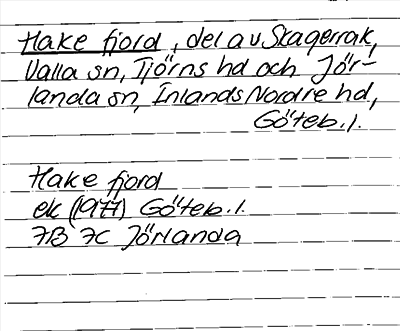 Hake fjord, del av Skagerrak,
Valla sn, Tjörns hd och Jör-
landa sn, Inlands Nordre hd,
Göteb. l.
Hake fjord
ek (1977) Göteb. l.
7B 7C Jörlanda